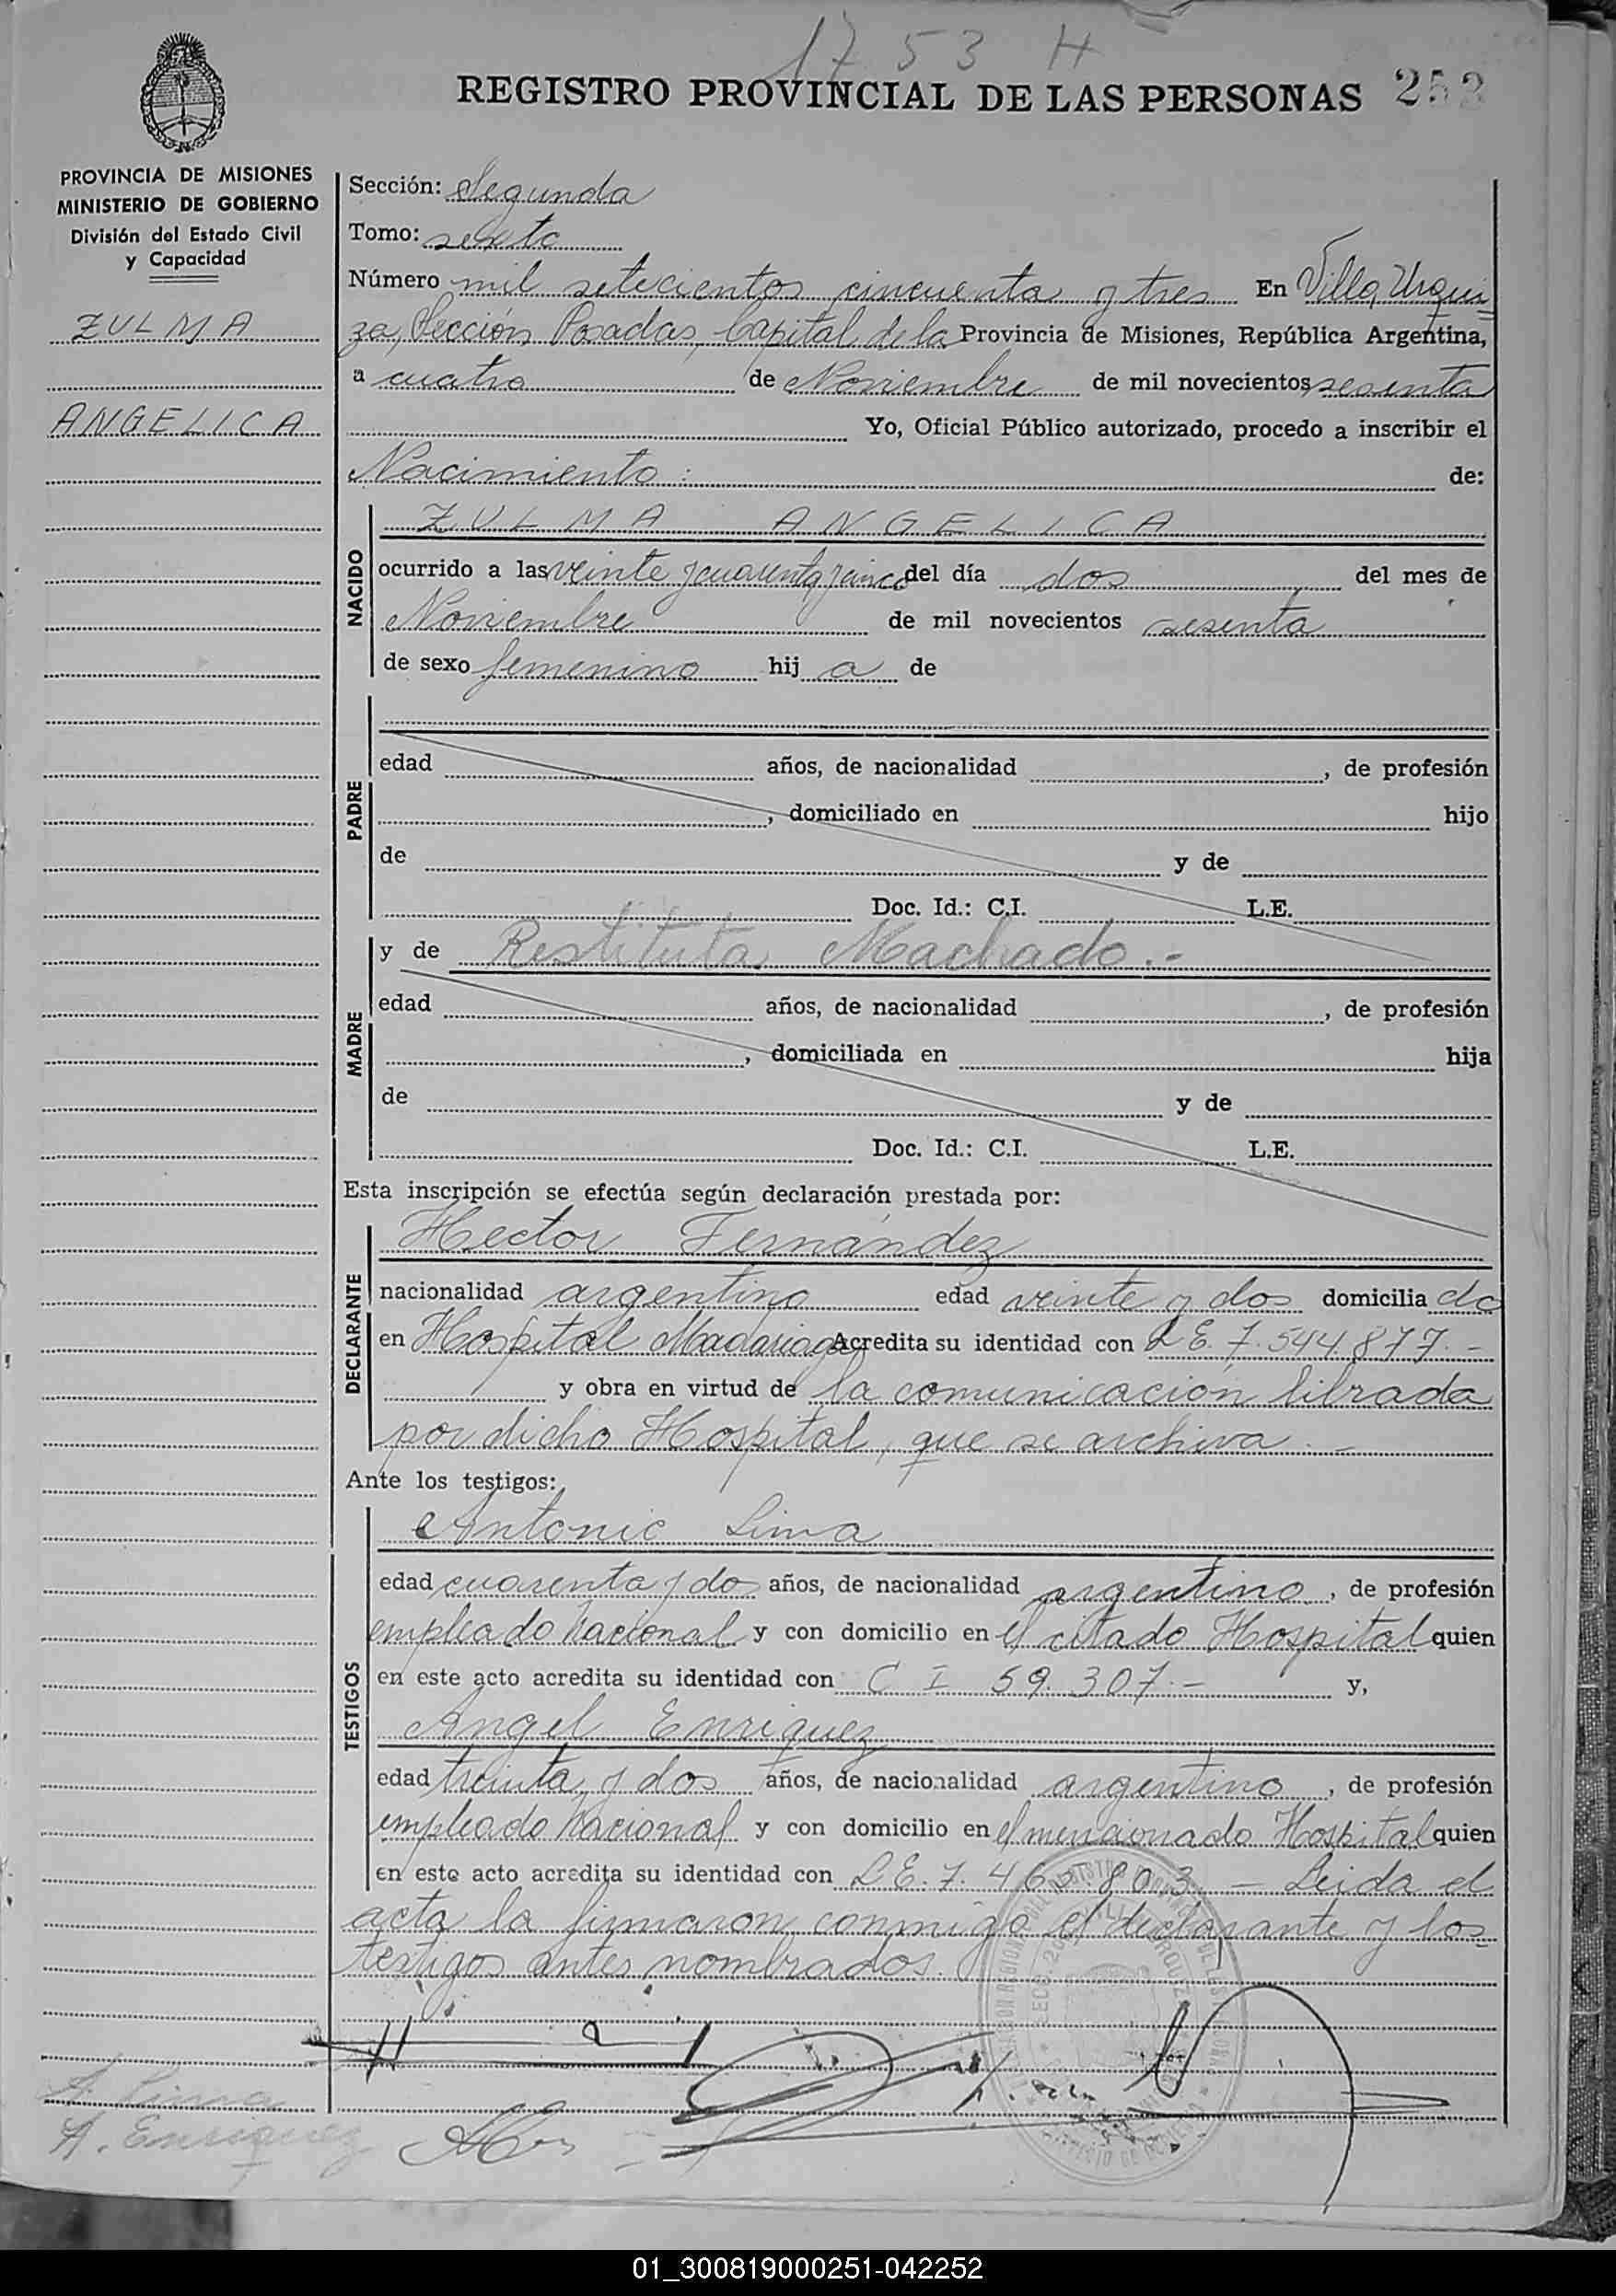 1753 H
REGISTRO PROVINCIAL DE LAS PERSONAS 252
PROVINCIA DE MISIONES
MINISTERIO DE GOBIERNO
División del Estado Civil
y Capacidad
ZULMA
ANGELICA
Sección: Segunda
Tomo: sexto
Número mil setecientos cincuenta y tres En Villa Urqui
za, Sección Posadas, Capital de la Provincia de Misiones, República Argentina,
a cuatro de Noviembre de mil novecientos sesenta
Yo, Oficial Público autorizado, procedo a inscribir el
Nacimiento: de:
NACIDO
ZULMA ANGELICA
ocurrido a las veinte y cuarenta y cinco del día dos del mes de
Noviembre de mil novecientos sesenta
de sexo femenino hij a de
PADRE
edad años, de nacionalidad , de profesión
, domiciliado en hijo
de y de
Doc. Id.: C.I. L.E.
MADRE
y de Restituta Machado.-
edad años, de nacionalidad , de profesión
, domiciliada en hija
de y de
Doc. Id.: C.I. L.E.
Esta inscripción se efectúa según declaración prestada por:
DECLARANTE
Hector Fernández
nacionalidad argentino edad veinte y dos domicilia do
en Hospital Madariaga Acredita su identidad con L E. 7.544.877.-
y obra en virtud de la comunicación librada
por dicho Hospital, que se archiva.-
Ante los testigos:
TESTIGOS
Antonio Lima
edad cuarenta y dos años, de nacionalidad argentino, de profesión
empleado Nacional y con domicilio en el citado Hospital quien
en este acto acredita su identidad con C I 59.307.- y,
Angel Enriquez
edad treinta y dos años, de nacionalidad argentino, de profesión
empleado Nacional y con domicilio en el mencionado Hospital quien
en este acto acredita su identidad con L E. 7.46 803 - Leida el
acta la firmaron conmigo el declarante y los
testigos antes nombrados.
A. Lima
A. Enriquez
01_300819000251-042252